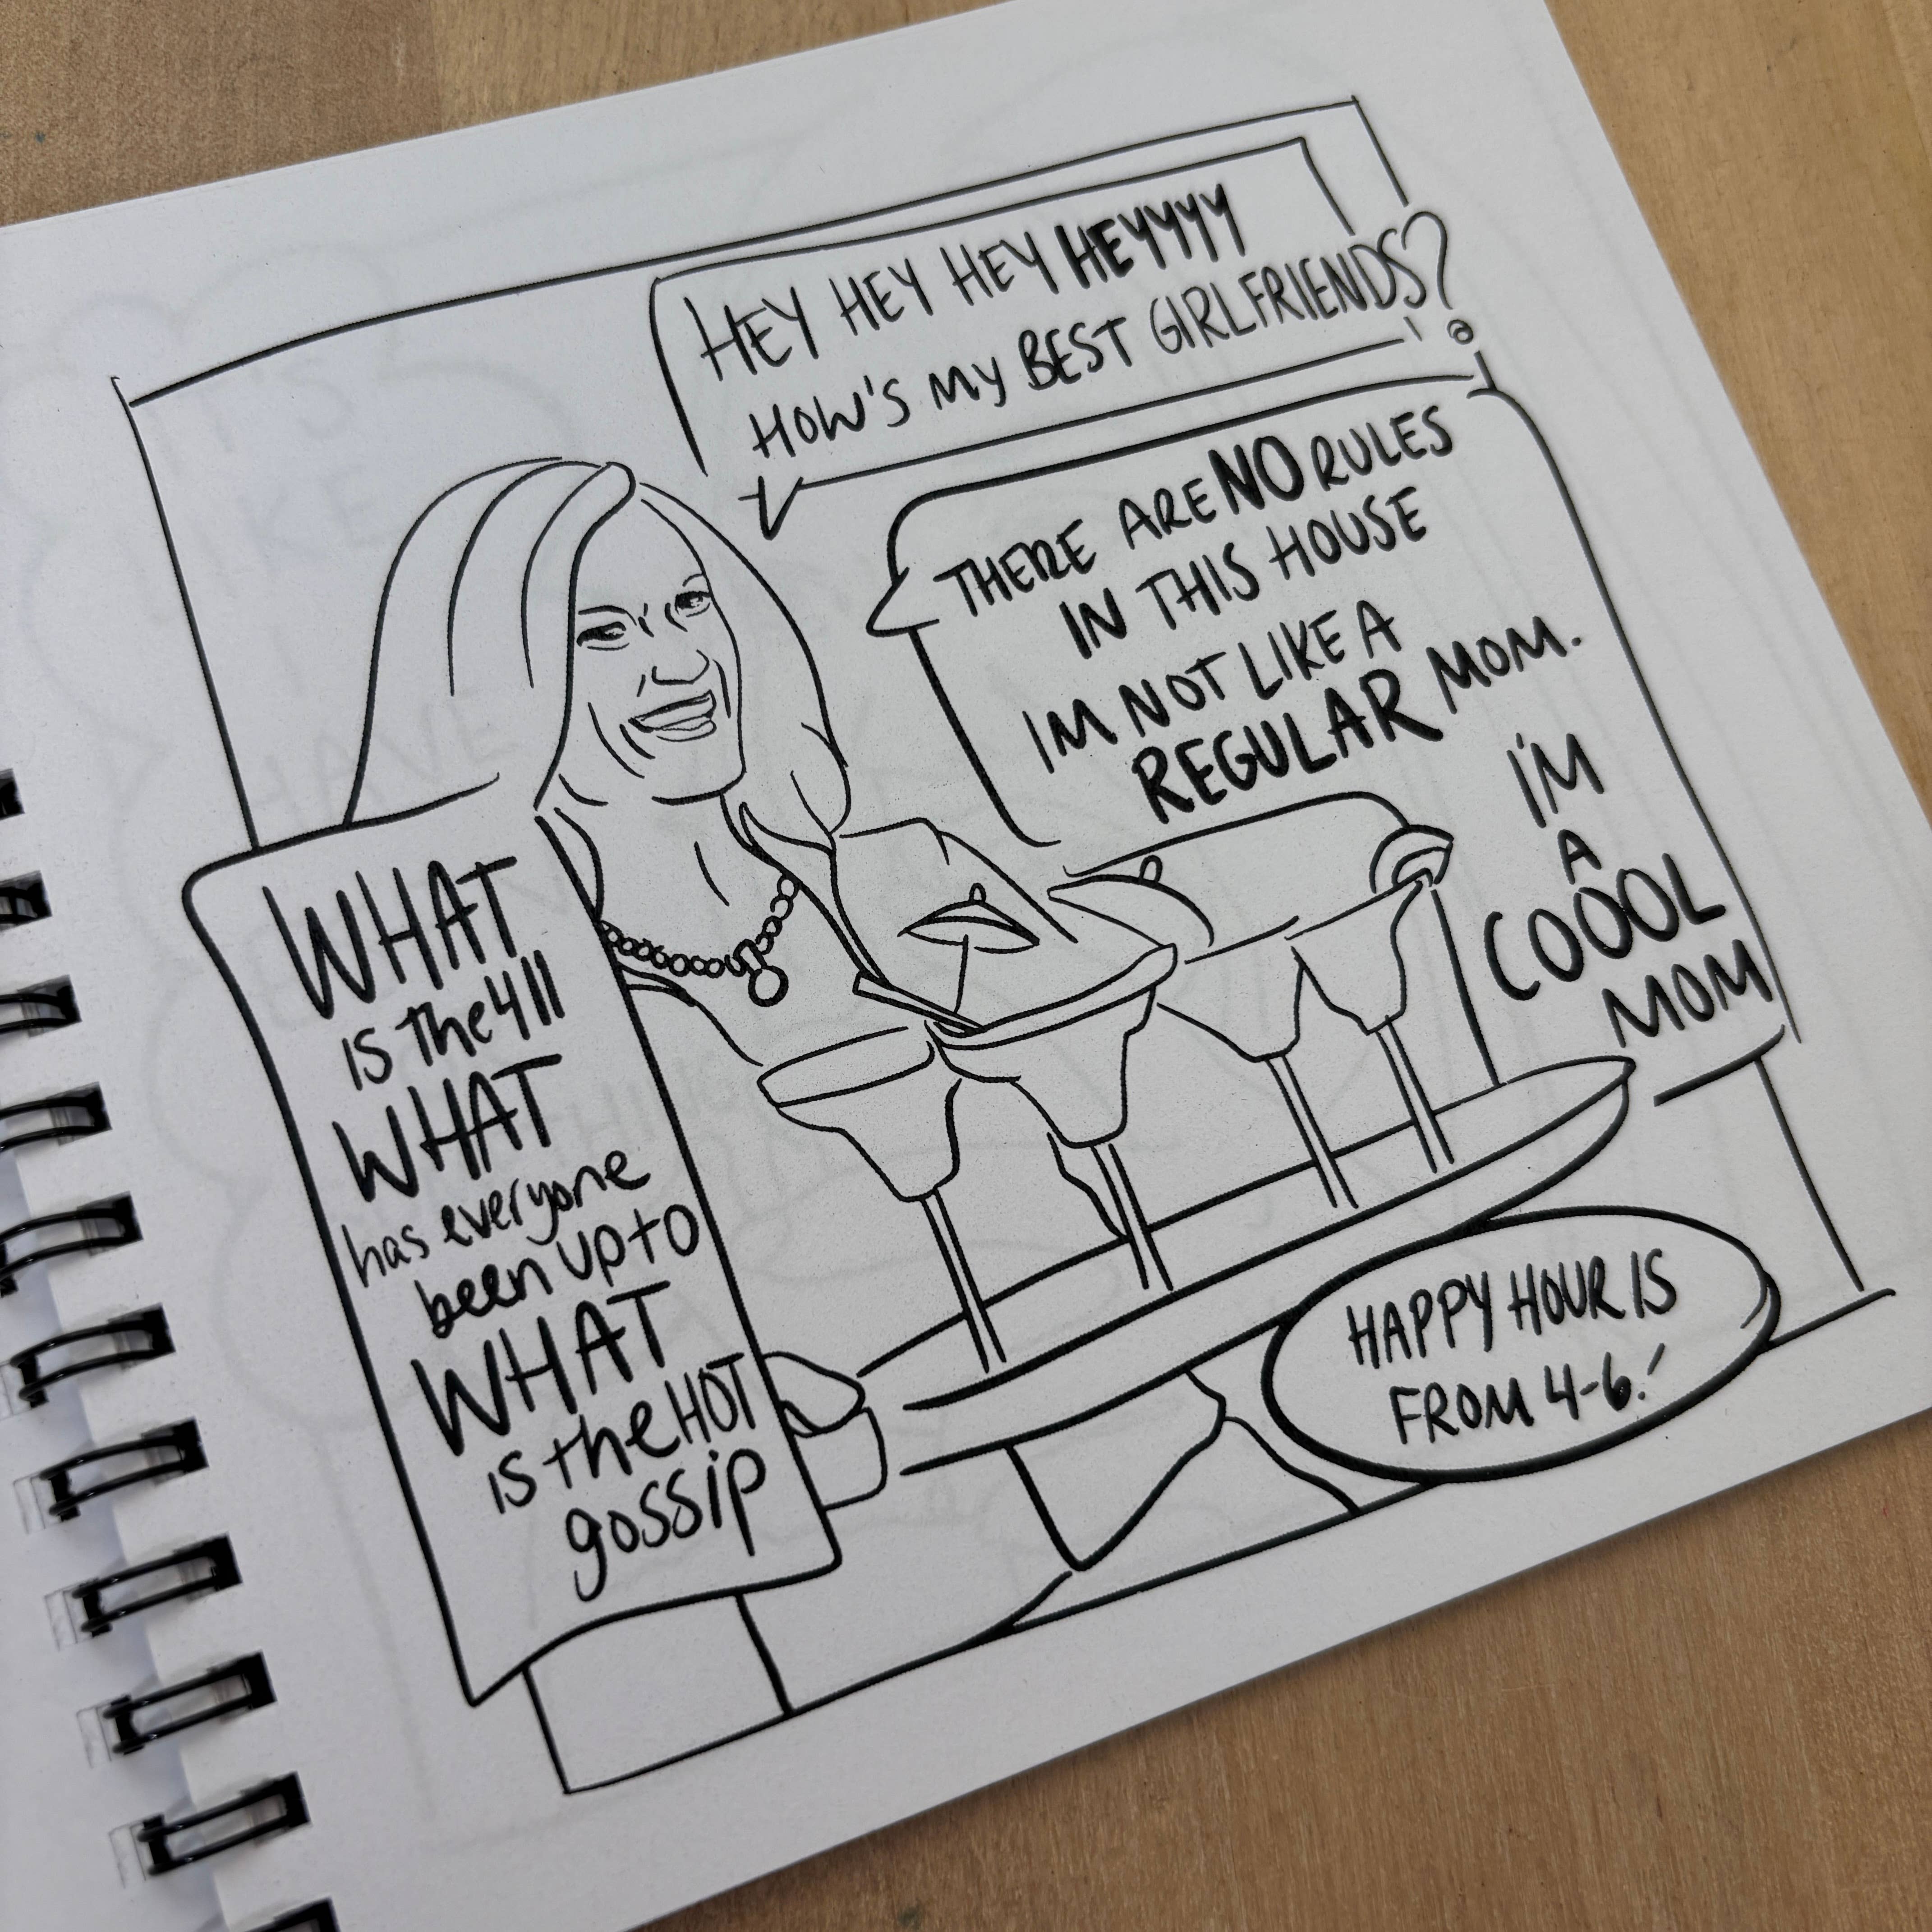 HEY HEY HEY HEYYYY
HOW'S MY BEST GIRLFRIENDS?
THERE ARE NO RULES
IN THIS HOUSE
IM NOT LIKE A
REGULAR MOM.
I'M
A
COOOL
MOM
WHAT
is the 411
WHAT
has everyone
been up to
WHAT
is the HOT
gossip
HAPPY HOUR IS
FROM 4-6!